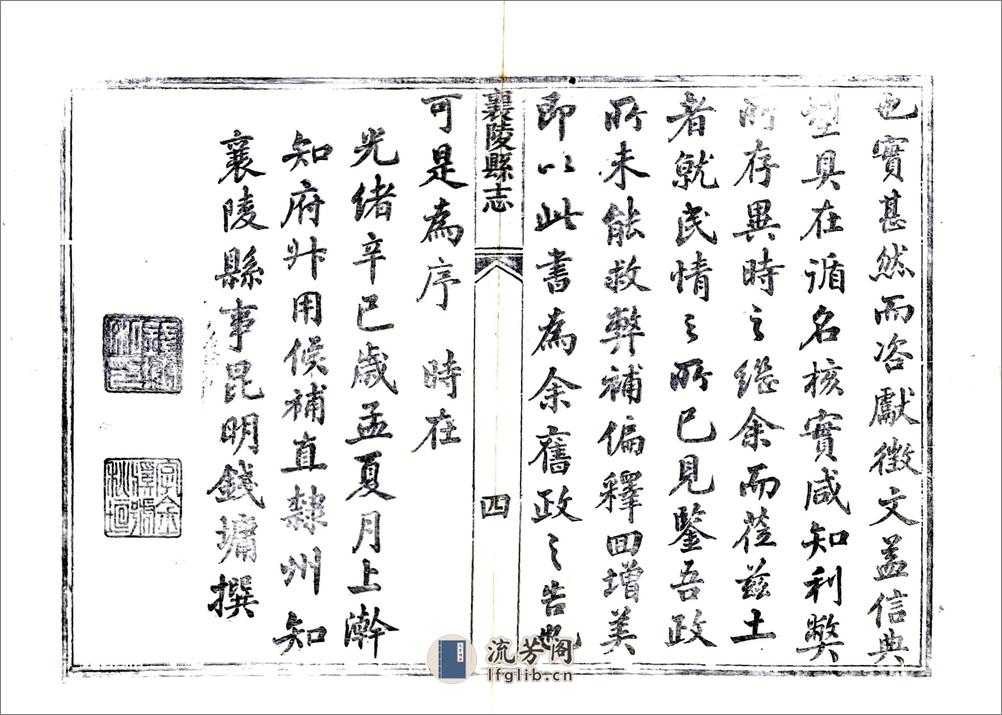 也實甚然而咨獻徵文益信典
型具在循名核實咸知利弊
所存異時之繼余而莅茲土
者就民情之所已見鑒吾政
所未能救弊補偏釋回增美
即以此書為余舊政之告也
襄陵縣志
四
可是為序 時在
光緒辛巳歲孟夏月上澣
知府升用候補直隸州知
襄陵縣事昆明錢墉撰
流芳阁
lfglib.cn